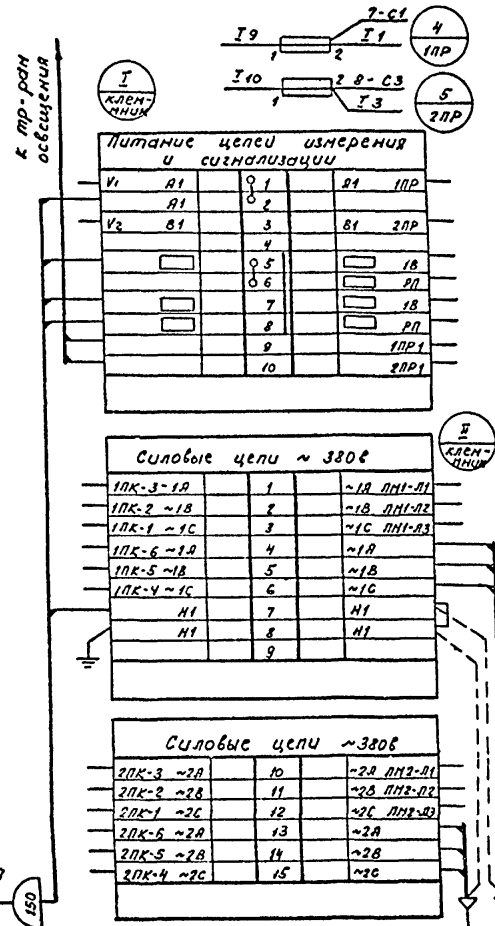 7-С1
I9
1
2
I1
4
1ПР
I10
1
2
8-С3
I3
5
2ПР
к тр-рам
освещения
I
клем-
мник
Питание цепей измерения
и сигнализации
V1 А1 1 А1 1ПР
А1 2
V2 В1 3 В1 2ПР
4
5 1В
6 РП
7 1В
8 РП
9 1ПР1
10 2ПР1
II
клем-
мник
Силовые цепи ~ 380в
1ПК-3-1А 1 ~1А ПМ1-Л1
1ПК-2 ~1В 2 ~1В ПМ1-Л2
1ПК-1 ~1С 3 ~1С ПМ1-Л3
1ПК-6 ~1А 4 ~1А
1ПК-5 ~1В 5 ~1В
1ПК-4 ~1С 6 ~1С
Н1 7 Н1
Н1 8 Н1
9
Силовые цепи ~380в
2ПК-3 ~2А 10 ~2А ПМ2-Л1
2ПК-2 ~2В 11 ~2В ПМ2-Л2
2ПК-1 ~2С 12 ~2С ПМ2-Л3
2ПК-6 ~2А 13 ~2А
2ПК-5 ~2В 14 ~2В
2ПК-4 ~2С 15 ~2С
150